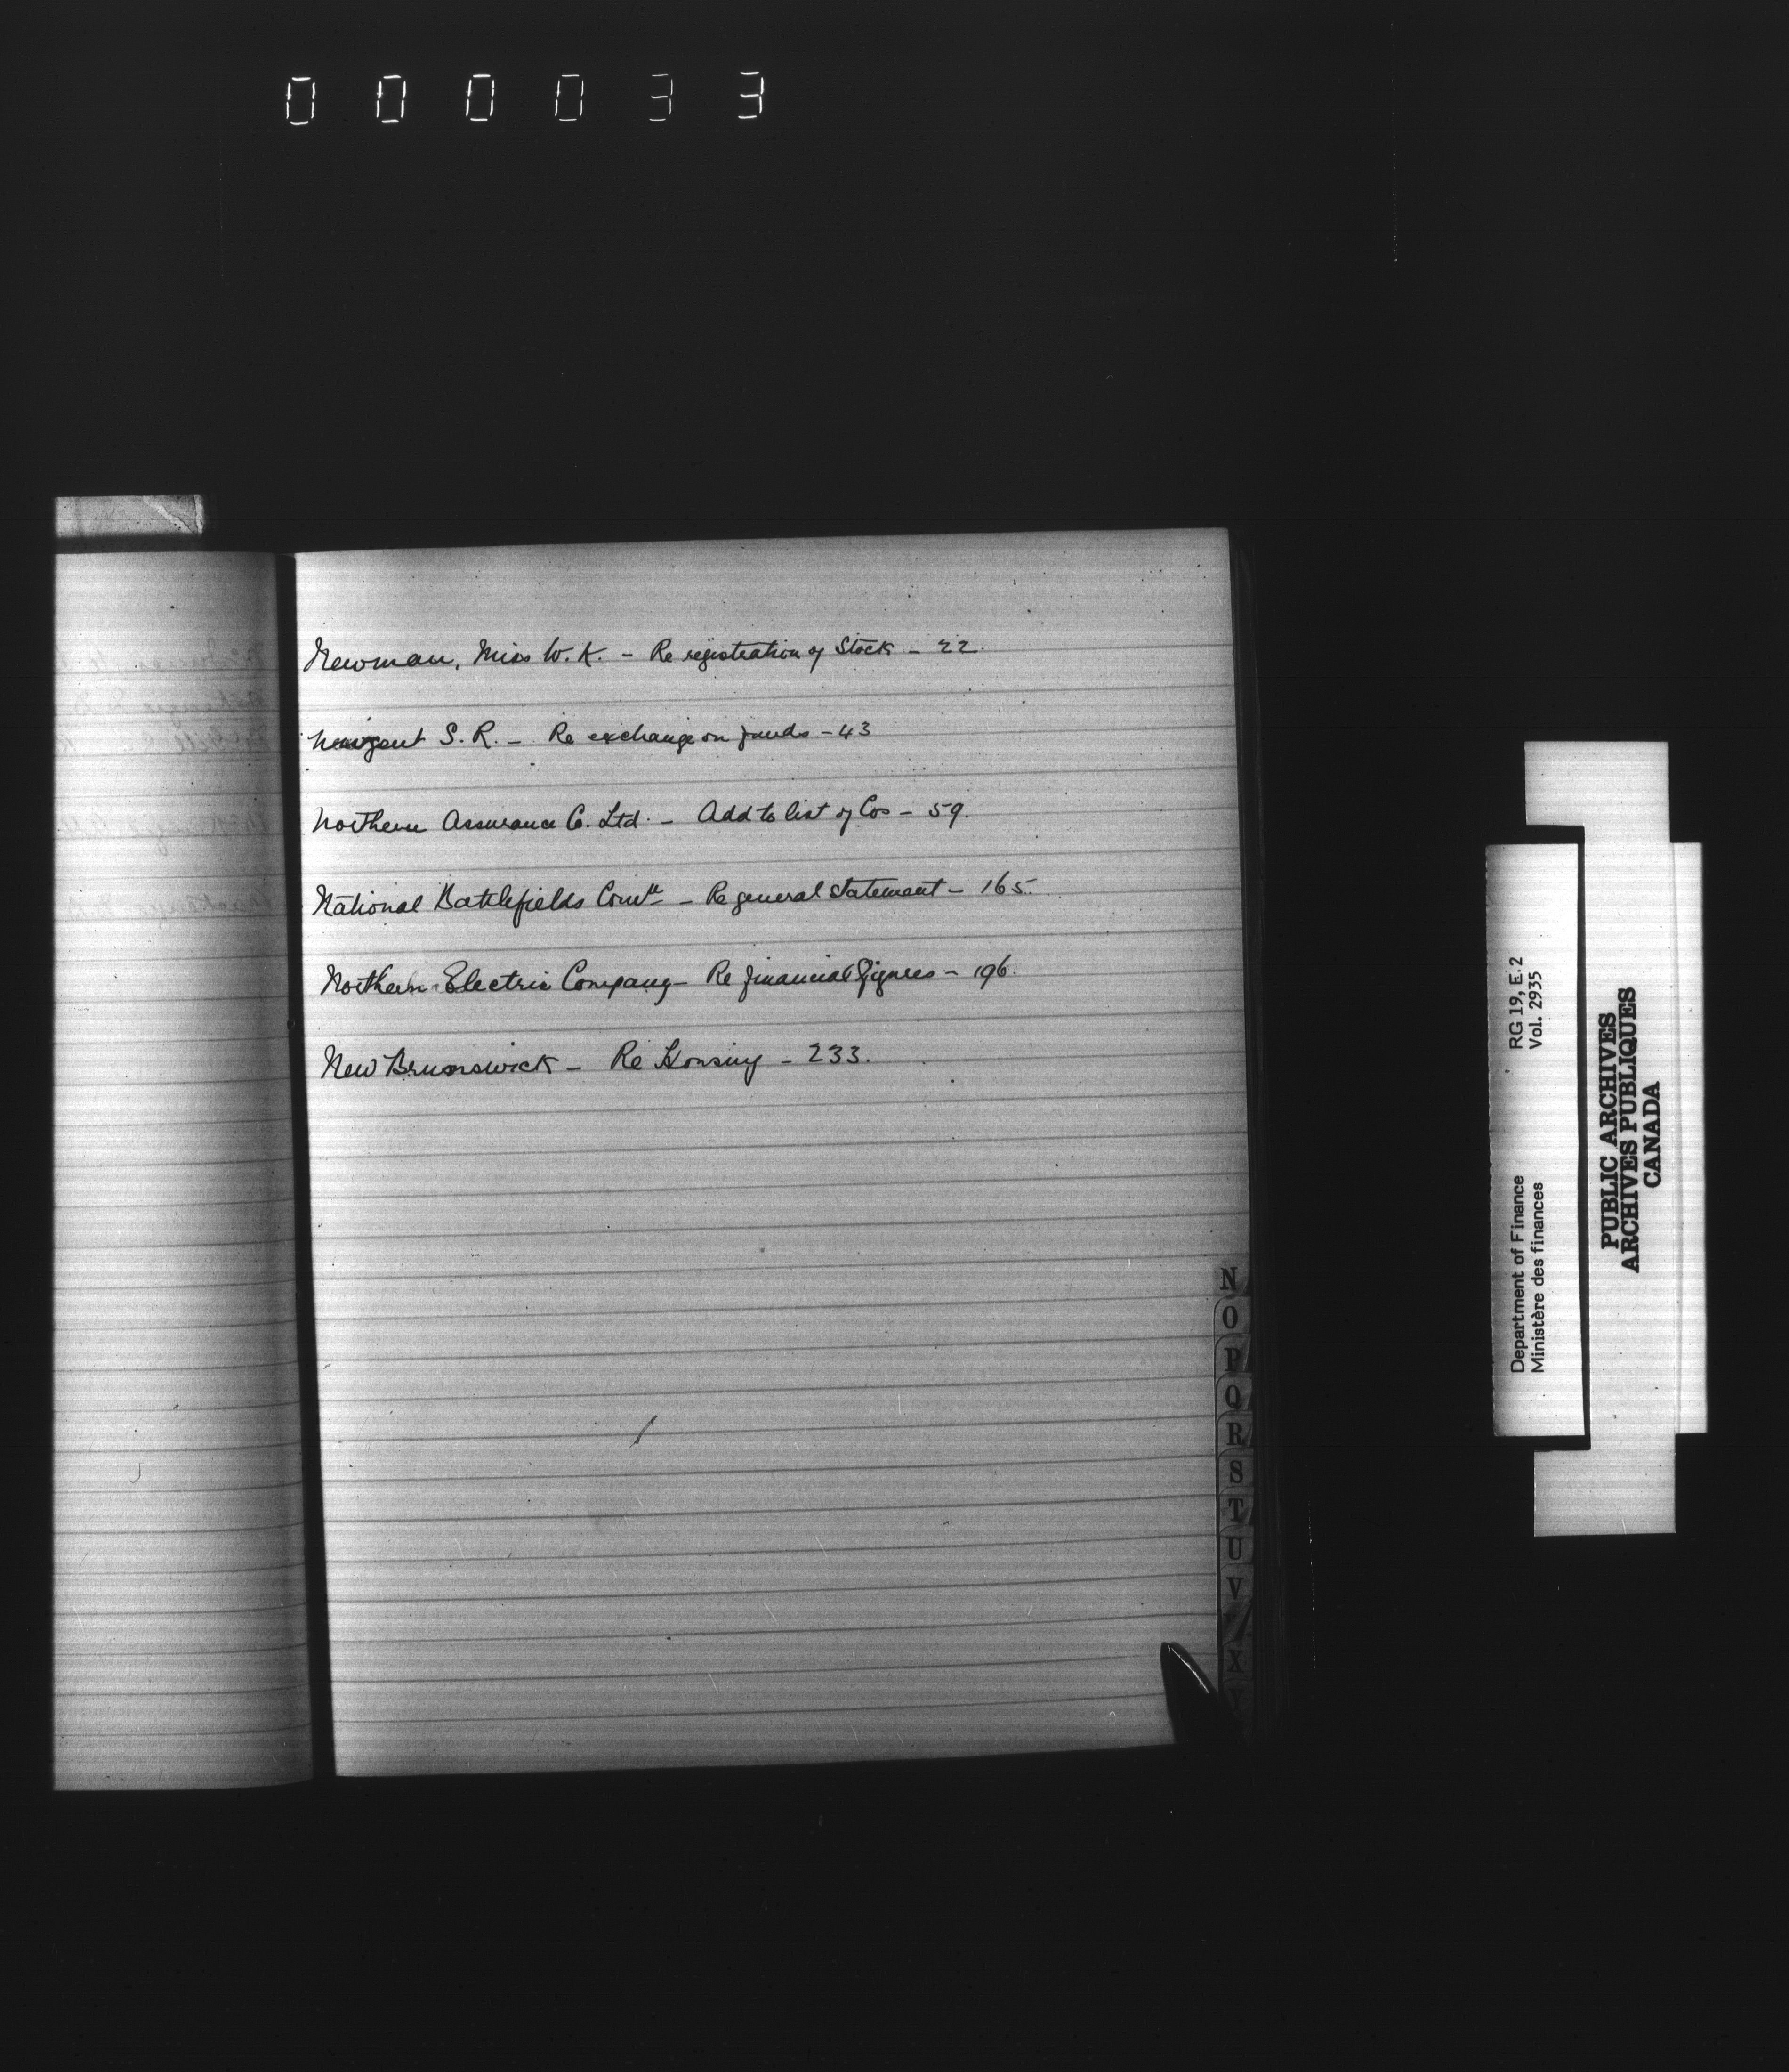 000033
Newman, Miss W. K. - Re registration of Stock - 22.
S. R. - Re exchange on funds - 43
Northern Assurance Co. Ltd. - Add to list of Cos - 59.
National Battlefields - Re general statement - 165.
Northern Electric Company - Re financial figures - 196.
New Brunswick - Re Housing - 233.
N
O
P
Q
R
S
T
U
V
X
Y
Department of Finance RG 19, E.2
Ministère des finances Vol. 2935
PUBLIC ARCHIVES
ARCHIVES PUBLIQUES
CANADA